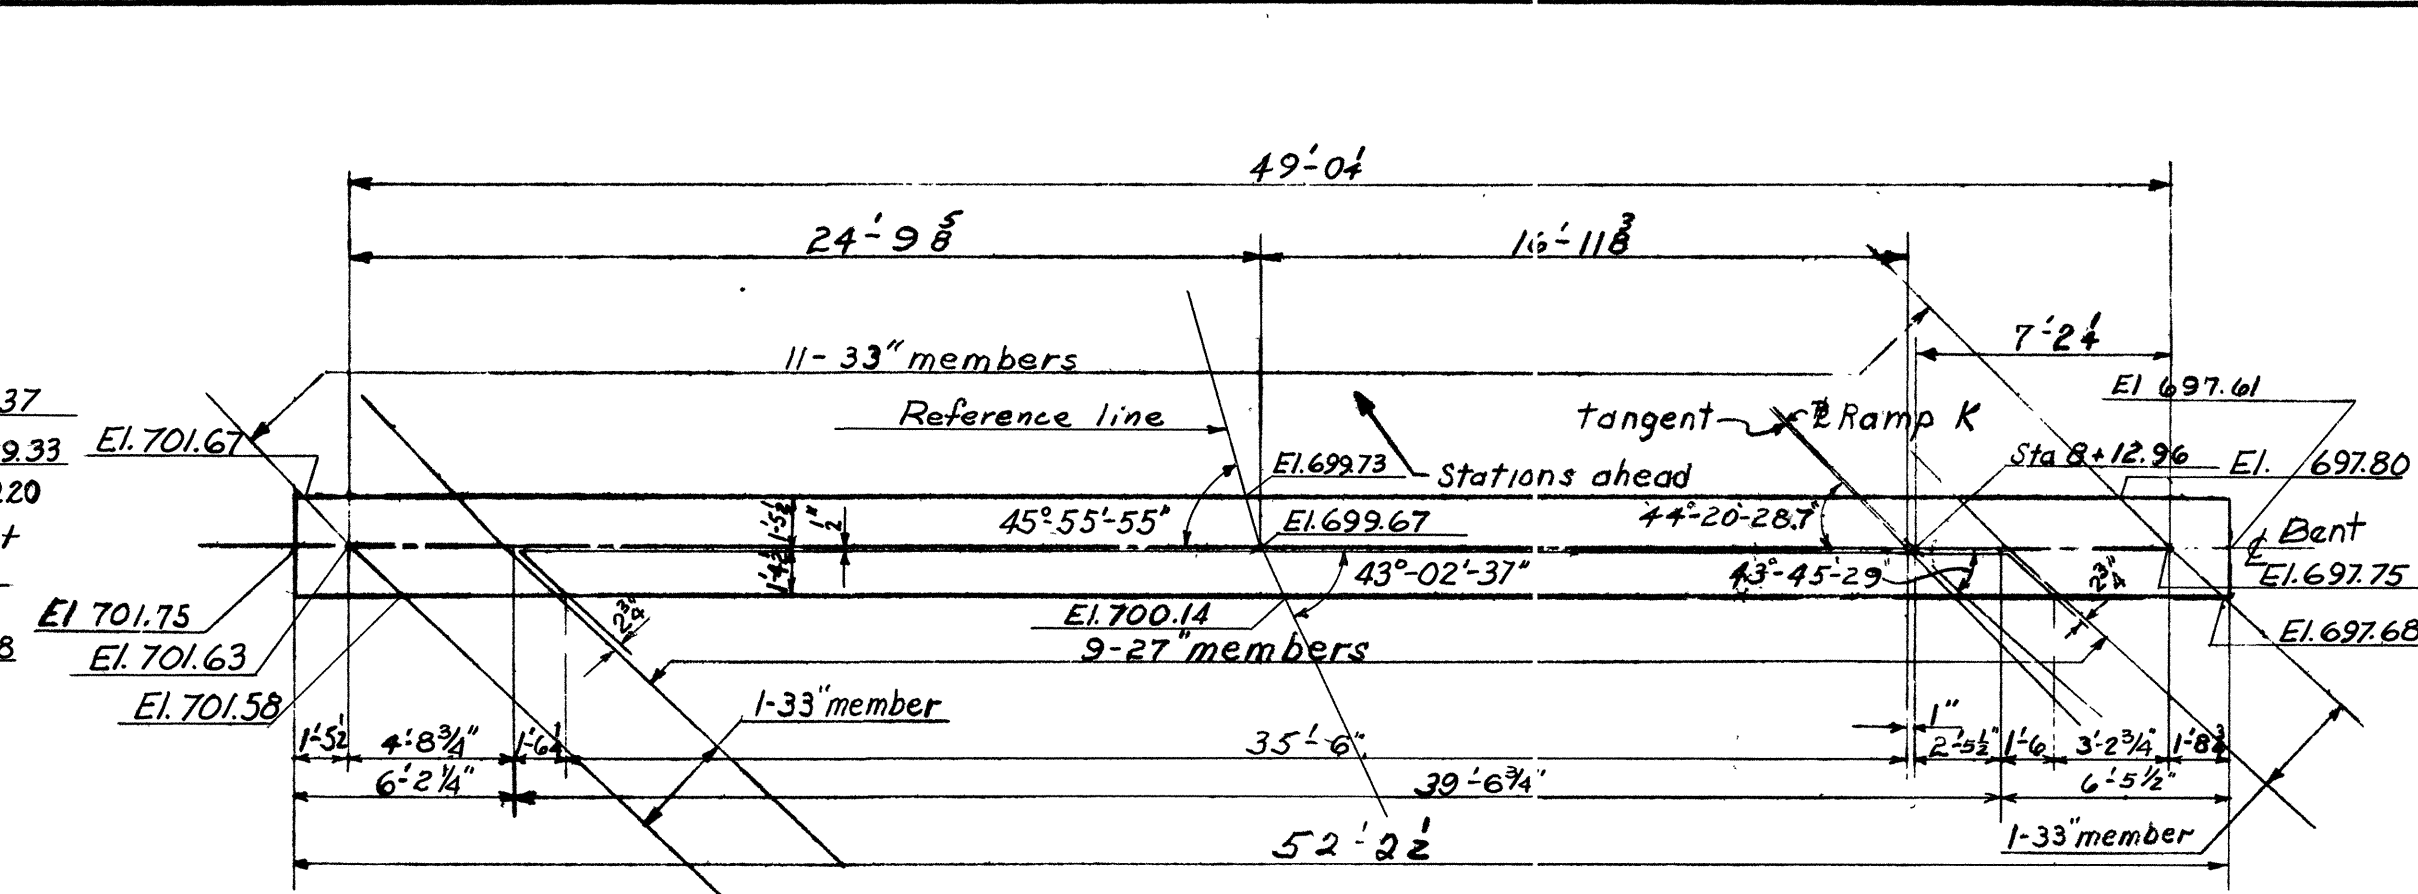 49'-0¼
24'-9⅝
16'-11⅜
7'-2¼
11-33" members
El 697.61
37
Reference line
tangent
℄ Ramp K
9.33
El. 701.67
El. 699.73
Stations ahead
Sta 8+12.96
El. 697.80
20
1'-5½
½"
45°-55'-55"
El. 699.67
44°-20'-28.7"
℄ Bent
1'-4½
43°-02'-37"
43°-45'-29"
2¾"
El. 697.75
El 701.75
2¾"
El. 700.14
El. 697.68
8
El. 701.63
9-27" members
El. 701.58
1-33" member
1"
1'-5½
4'-8¾"
1'-6¼
35'-6"
2'-5½"
1'-6
3'-2¾"
1'-8¾
6'-2¼"
39'-6¾"
6'-5½"
52'-2½
1-33" member